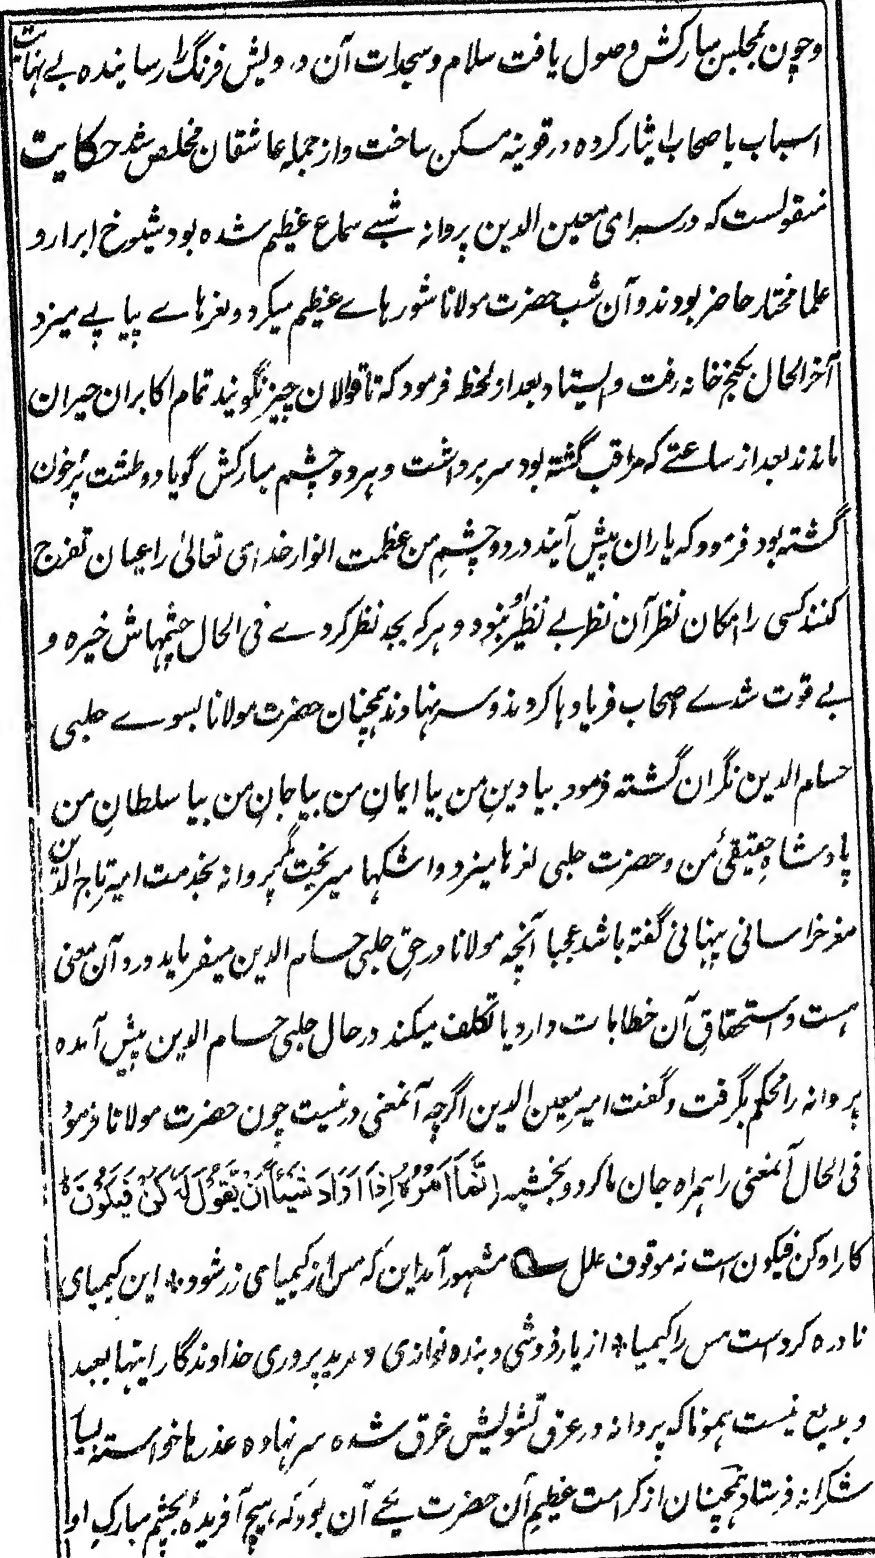 وچون بمجلس مبارکش وصول یافت سلام وسجدات آن درویش فرنگ را رسانیده بے نہایت
اسباب باصحاب ایثار کرده در قونیه مسکن ساخت واز جمله عاشقان مخلص شد حکایت
منقولست که در سرای معین الدین پروانه شبے سماع عظیم شده بود شیوخ ابرار و
علما مختار حاضر بودند وآن شب حضرت مولانا شورهاے عظیم میکرد ونعرهاے پیاپے میزد
آخرالحال بکنج خانه رفت وایستاد بعد از لحظه فرمود که تا قوالان چیزے نگویند تمام اکابران حیران
ماندند بعد از ساعتے که مراقب گشته بود سر برداشت وهر دو چشم مبارکش گویا دو طشت پرخون
گشته بود فرمود که یاران پیش آیند در دو چشم من عظمت انوار خدای تعالیٰ را عیان تفرج
کنند کسی را امکان نظر آن نظر بے نظیر او نبود وهرکه بجد نظر کردے فی الحال چشمهاش خیره و
بے قوت شدے اصحاب فریادها کردند وسر نهادند همچنان حضرت مولانا بسوے چلبی
حسام الدین نگران گشته فرمود بیا دینِ من بیا ایمانِ من بیا جانِ من بیا سلطانِ من
پادشاهِ حقیقیٔ من وحضرت چلبی نعرها میزد واشکها میریخت مگر پروانه بخدمت امیر تاج الدین
معز خراسانی پنهانی گفته باشد عجبا آنچه مولانا در حق چلبی حسام الدین میفرماید درو آن معنی
هست واستحقاقِ آن خطابات دارد یا تکلف میکند در حال چلبی حسام الدین پیش آمده
پروانه را محکم بگرفت وگفت امیر معین الدین اگرچه آنمعنی در نیست چون حضرت مولانا فرمود
فی الحال آنمعنی را همراه جان ما کرد وبخشید اِنَّمَا اَمْرُهُ اِذَا اَرَادَ شَيْئًا اَنْ يَّقُوْلَ لَهٗ كُنْ فَيَكُوْنُ
کار او کن فیکون است نه موقوف علل مشهور آمد این که مس از کیمیای زر شود * این کیمیای
نادره کردست مس را کیمیا * از یارفروشی وبنده نوازی ومریدپروری خداوندگار اینها بعید
وبدیع نیست همونا که پروانه در عرق تشویش غرق شده سر نهاده عذرها خواسته بسیا
شکرانه فرستاد همچنان از کرامت عظیمِ آن حضرت یکے آن بود که هیچ آفریدۀ بچشم مبارکِ او